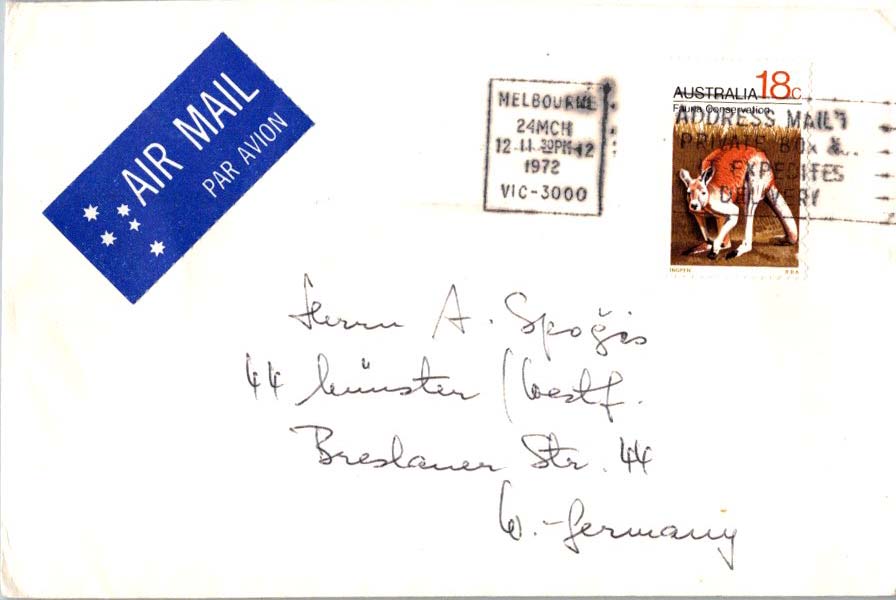 AIR MAIL
PAR AVION
MELBOURNE
24MCH
12-11 30PM-12
1972
VIC-3000
AUSTRALIA 18C
Fauna Conservation
ADDRESS MAIL
PRIVATE BOX &
EXPEDITES
DELIVERY
INGPEN
Herrn A. Spoģis
44 Münster (Westf.
Breslauer Str. 44
W.-Germany